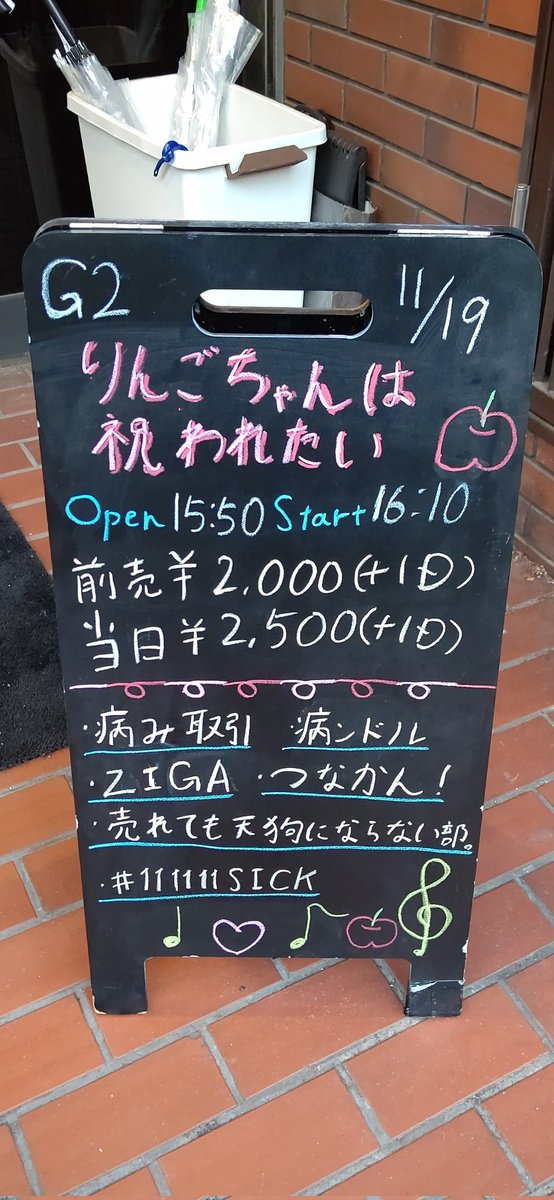 G2 11/19
りんごちゃんは
祝われたい
Open 15:50 Start 16:10
前売¥2,000(+1D)
当日¥2,500(+1D)
・病み取引 ・病ンドル
・ZIGA ・つなかん!
・売れても天狗にならない部。
・#111111SICK